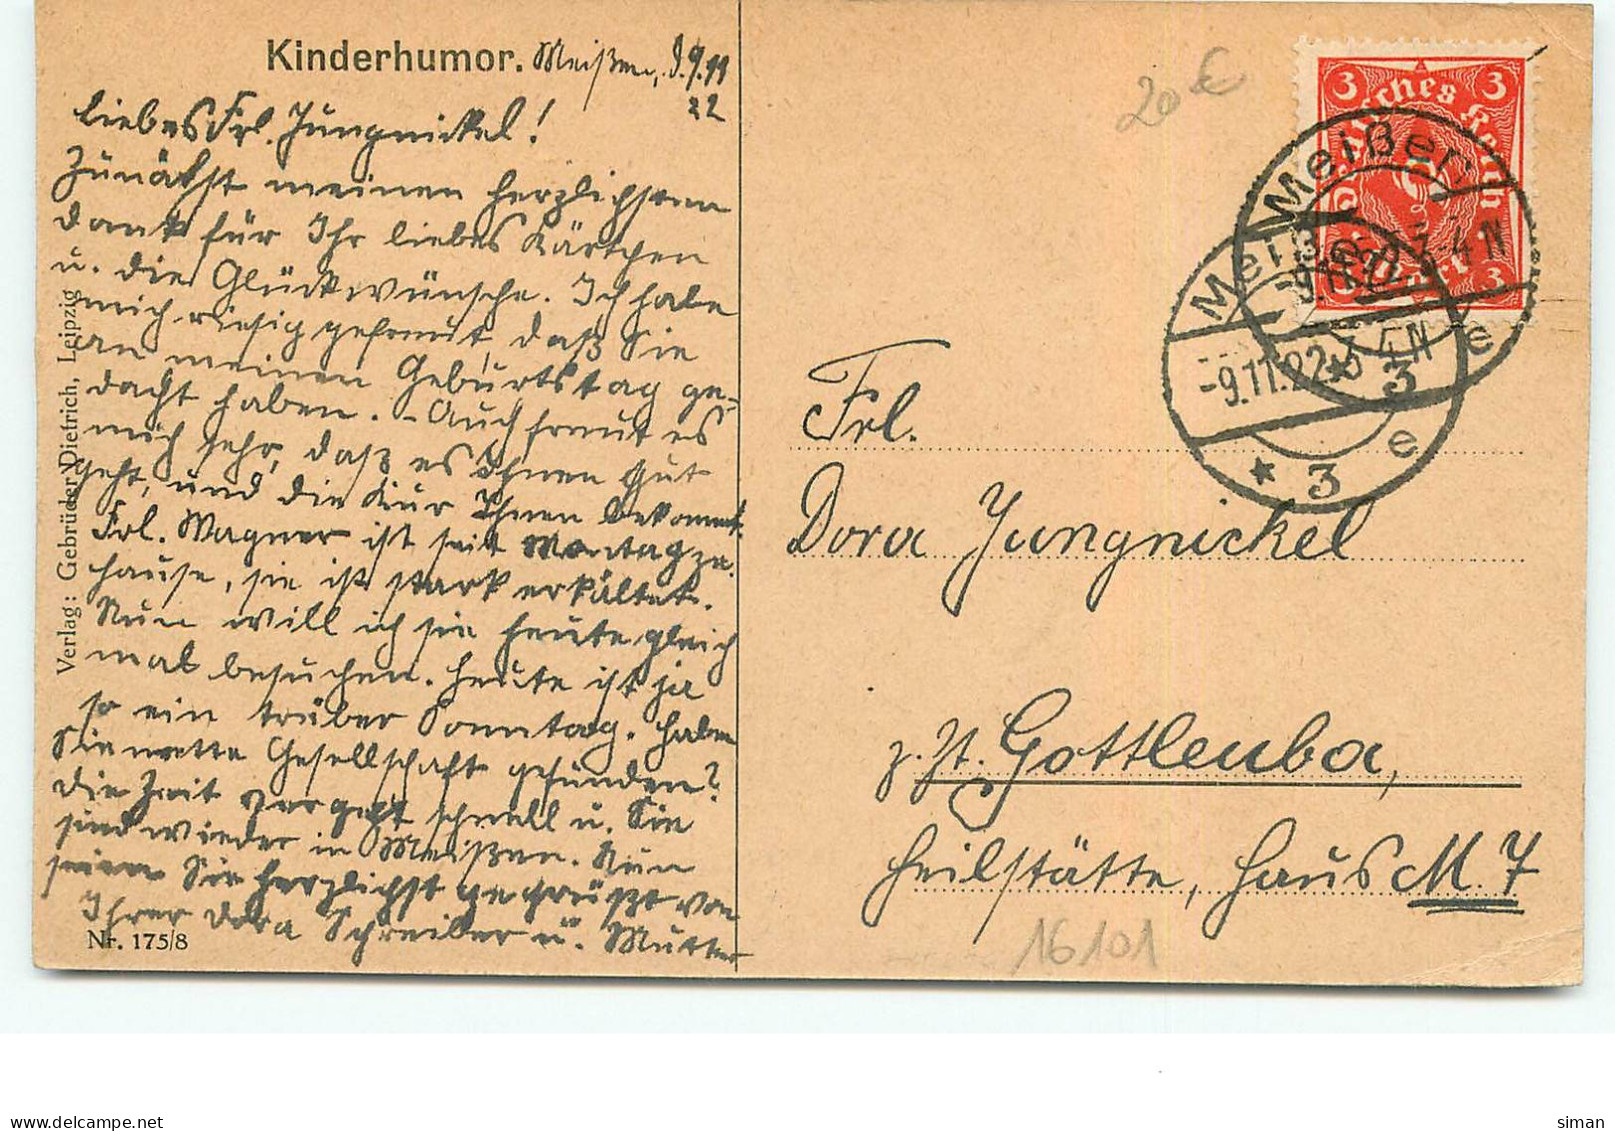 Kinderhumor. Meißen, d. 9.11
22
Liebes Frl. Jungnickel!
Zunächst meinen herzlichsten
Dank für Ihr liebes Kärtchen
u. die Glückwünsche. Ich habe
mich riesig gefreut, daß Sie
an meinen Geburtstag ge-
dacht haben. – Auch freut es
mich sehr, daß es Ihnen gut
geht, und die Kur Ihnen bekommt.
Frl. Wagner ist seit Montag zu
hause, sie ist stark erkältet.
Nun will ich sie heute gleich
mal besuchen. Heute ist ja
so ein trüber Sonntag. Haben
Sie nette Gesellschaft gefunden?
Die Zeit vergeht schnell u. Sie
sind wieder in Meißen. Nun
seien Sie herzlichst gegrüßt von
Ihrer Dora Schreiber u. Mutter
Nr. 175/8
Verlag: Gebrüder Dietrich, Leipzig
20 €
3 Deutsches Reich 3
3 Mark 3
Meißen
-9.11.22. 3-4 N
* 3 e
Meißen
-9.11.22. 3-4 N
* 3 e
Frl.
Dora Jungnickel
z. Zt. Gottleuba,
Heilstätte, Haus M. 7
16101
delcampe.net
siman